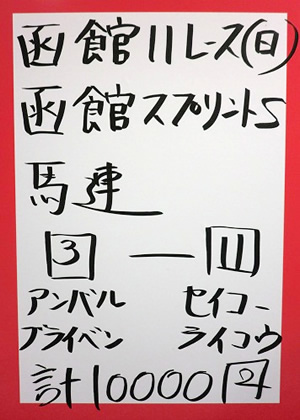 函館11レース(日)
函館スプリントS
馬連
3 — 11
アンバル セイコー
ブライベン ライコウ
計10000円